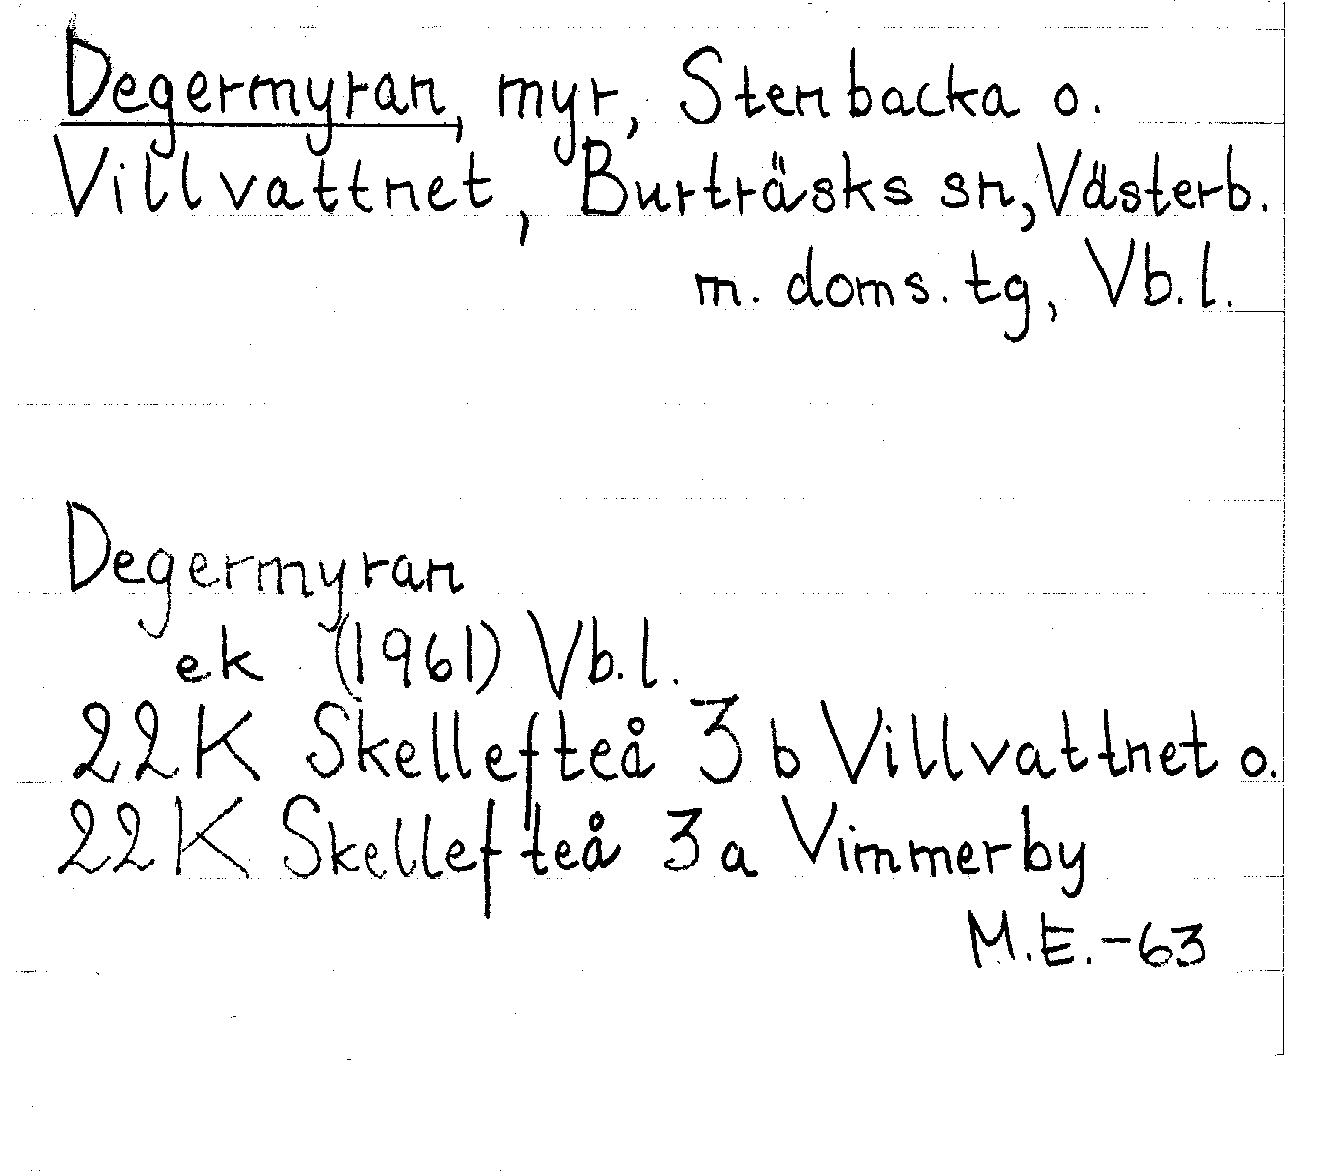 Degermyran, myr, Stenbacka o.
Villvattnet, Burträsks sn, Västerb.
m. doms. tg, Vb. l.
Degermyran
ek (1961) Vb. l.
22K Skellefteå 3 b Villvattnet o.
22K Skellefteå 3 a Vimmerby
M.E.-63